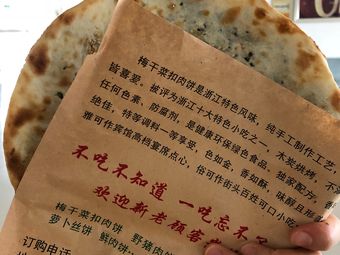 梅干菜扣肉饼是浙江特色风味，纯手工制作工艺，
皆喜爱，被评为浙江十大特色小吃之一，木炭烘烤，不
任何色素、防腐剂，是健康环保绿色食品，独家配方，香
绝佳，特等调料一等享受，色如金，香如酥，味醇且形
雅可作宾馆高档宴席点心，俗可作街头百姓可口小吃
不吃不知道 一吃忘不了
欢迎新老顾客
梅干菜扣肉饼 野猪肉
萝卜丝饼 鲜肉饼
订购电话